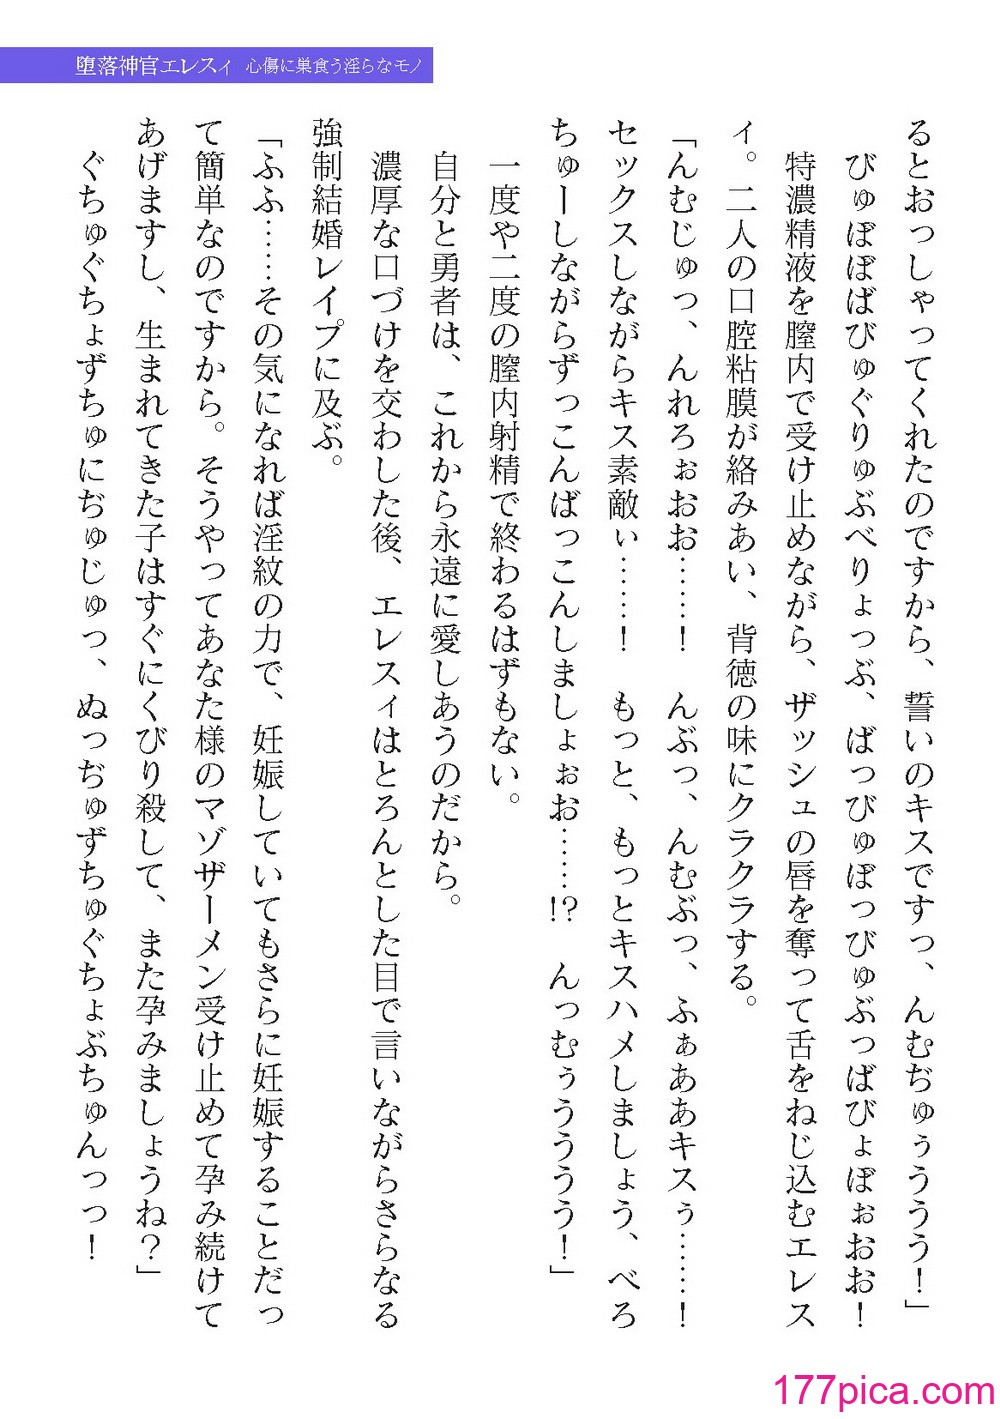 堕落神官エレスィ 心傷に巣食う淫らなモノ
るとおっしゃってくれたのですから、誓いのキスですっ、んむぢゅぅううう！」
びゅぽぽばびゅぐりゅぶべりょっぶ、ばっびゅぽっびゅぶっばびょぽぉおお！
特濃精液を膣内で受け止めながら、ザッシュの唇を奪って舌をねじ込むエレス
ィ。二人の口腔粘膜が絡みあい、背徳の味にクラクラする。
「んむじゅっ、んれろぉおお……！　んぶっ、んむぶっ、ふぁああキスぅ……！
セックスしながらキス素敵ぃ……！　もっと、もっとキスハメしましょう、べろ
ちゅーしながらずっこんばっこんしましょぉお……!?　んっむぅうううう！」
一度や二度の膣内射精で終わるはずもない。
自分と勇者は、これから永遠に愛しあうのだから。
濃厚な口づけを交わした後、エレスィはとろんとした目で言いながらさらなる
強制結婚レイプに及ぶ。
「ふふ……その気になれば淫紋の力で、妊娠していてもさらに妊娠することだっ
て簡単なのですから。そうやってあなた様のマゾザーメン受け止めて孕み続けて
あげますし、生まれてきた子はすぐにくびり殺して、また孕みましょうね？」
ぐちゅぐちょずちゅにぢゅじゅっ、ぬっぢゅずちゅぐちょぶちゅんっっ！
177pica.com